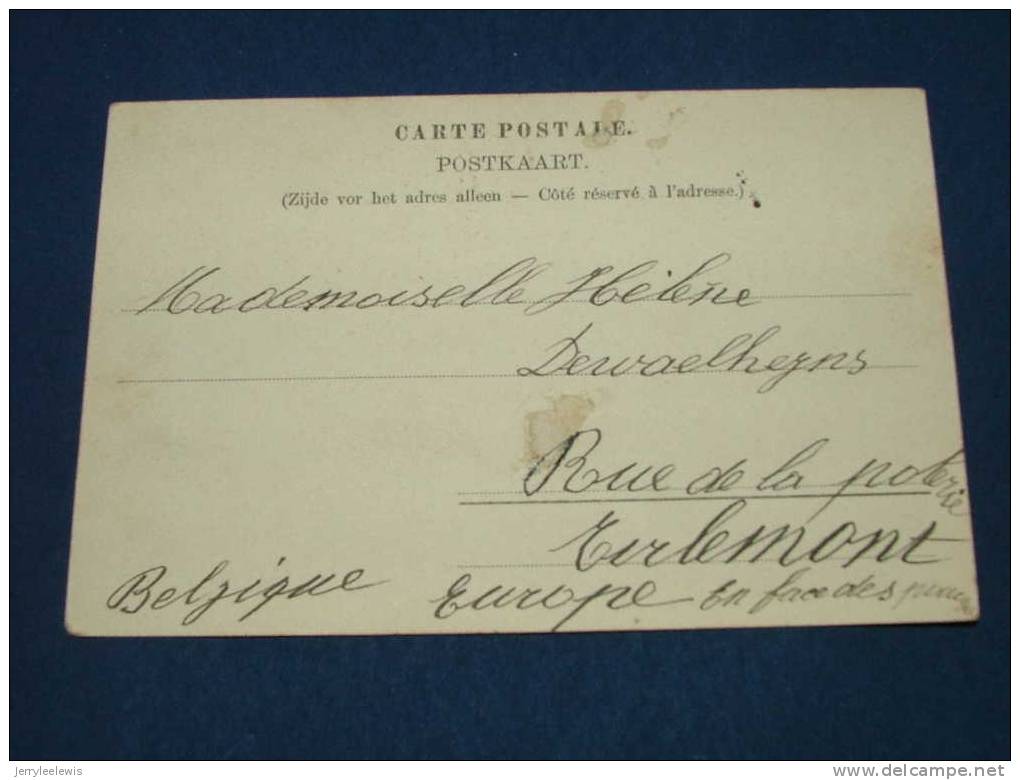 CARTE POSTALE.
POSTKAART.
(Zijde vor het adres alleen — Côté réservé à l'adresse.)
Mademoiselle Hélène
Dewaelheyns
Rue de la poterie
Tirlemont
Belgique Europe En face des
jerryleelewis
delcampe.net